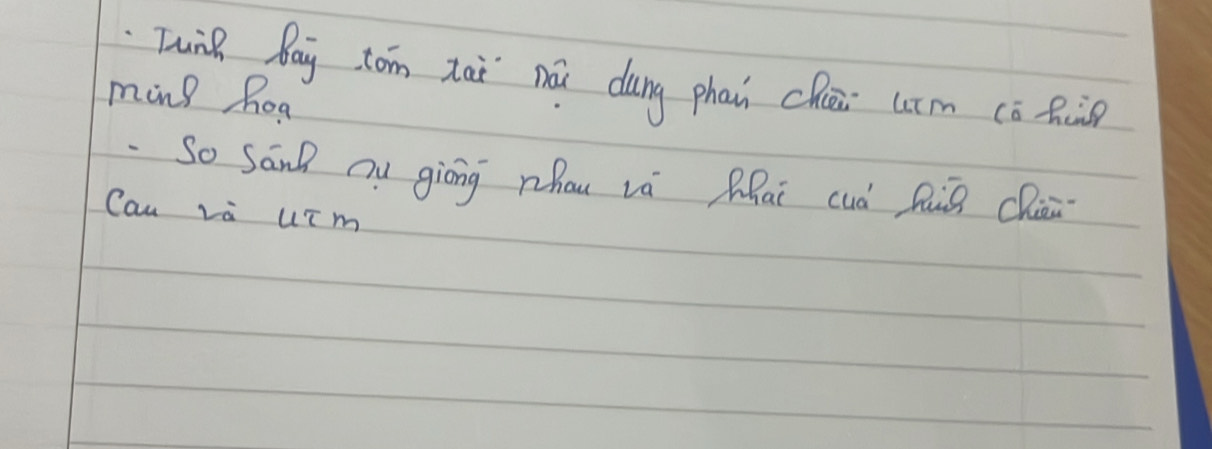 . Trình bày tóm tắt nội dung phép chiếu UTM có hình
minh họa
- So sánh sự giống nhau và khác của hình chiếu
Gau và UTM